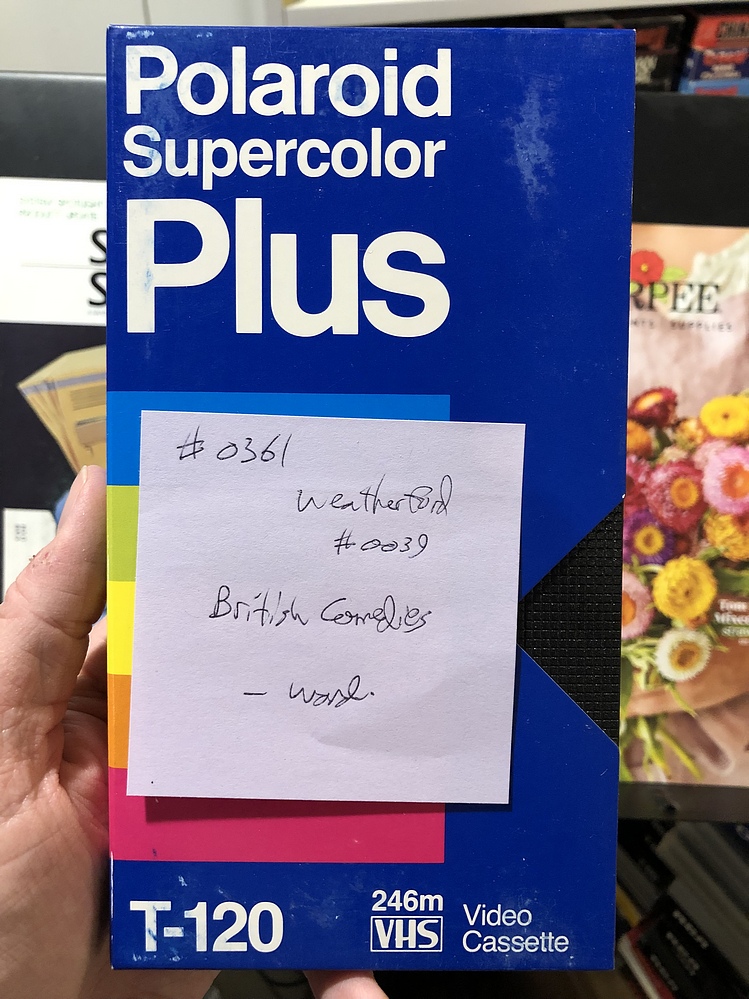 Polaroid
Supercolor
Plus
# 0361
Weatherford
# 0039
British Comedies
– Ward.
T-120
246m
VHS
Video
Cassette
RPEE
SUPPLIES